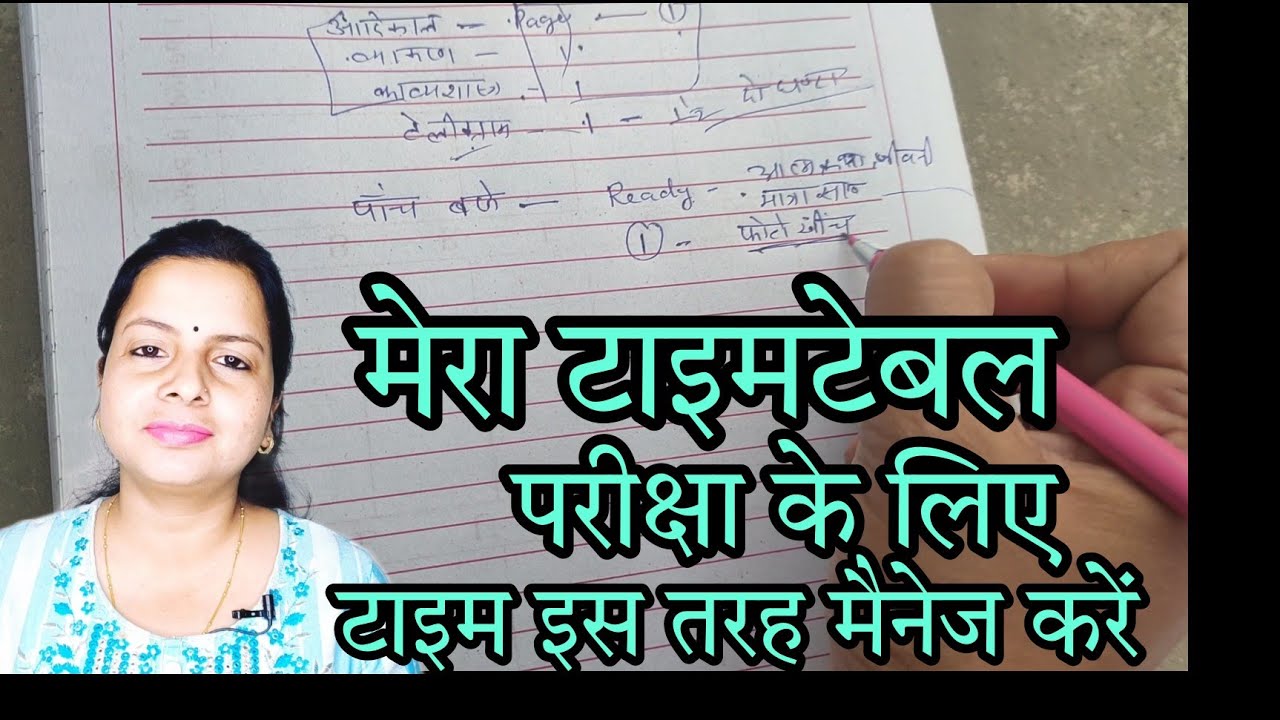 आदिकाल - Page - ①
व्याकरण -
काव्यशास्त्र - 1
टेलीग्राम - 1 - दो घण्टा
पांच बजे - Ready - आत्मकथा, जीवनी
① - फोटो खींच
मेरा टाइमटेबल
परीक्षा के लिए
टाइम इस तरह मैनेज करें